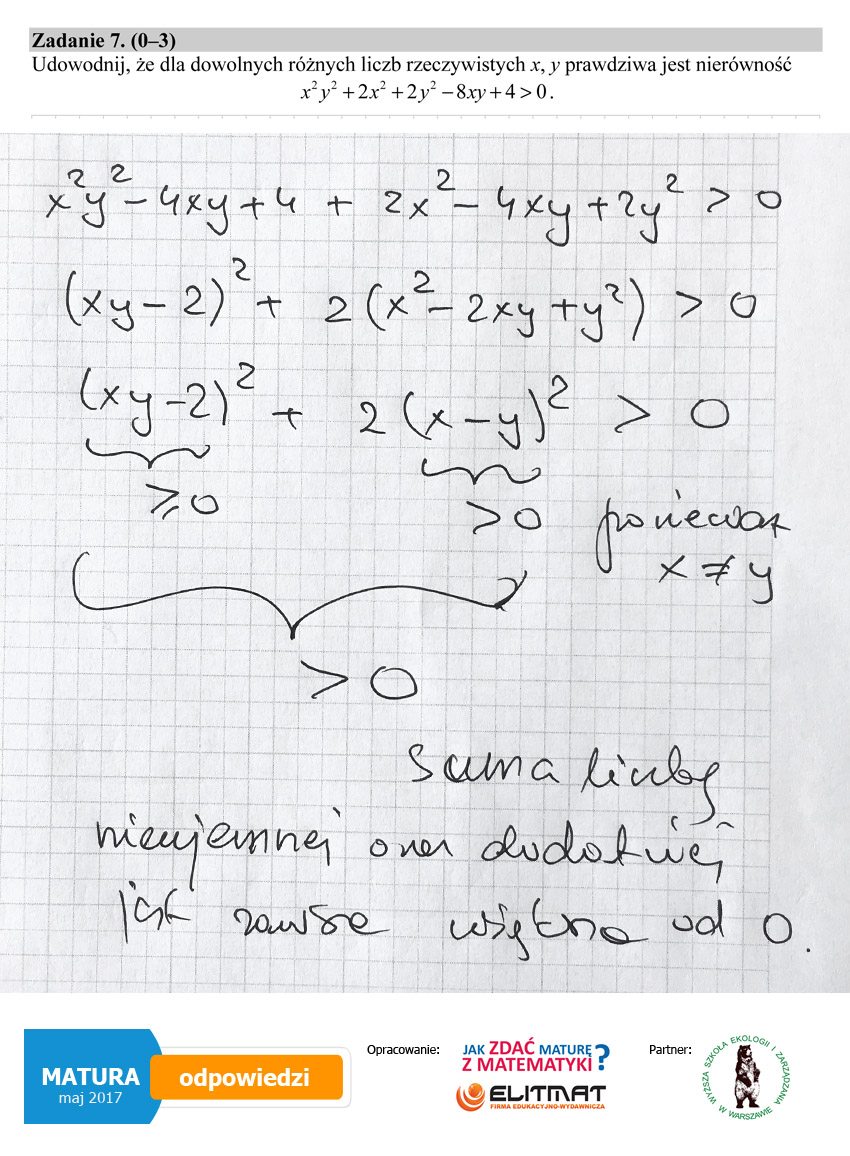 Zadanie 7. (0–3)
Udowodnij, że dla dowolnych różnych liczb rzeczywistych x, y prawdziwa jest nierówność
x²y² + 2x² + 2y² − 8xy + 4 > 0.
x²y² − 4xy + 4 + 2x² − 4xy + 2y² > 0
(xy − 2)² + 2(x² − 2xy + y²) > 0
(xy − 2)² + 2(x − y)² > 0
≥ 0 > 0 ponieważ
x ≠ y
> 0
Suma liczby
nieujemnej oraz dodatniej
jest zawsze większa od 0.
MATURA
maj 2017
odpowiedzi
Opracowanie:
JAK ZDAĆ MATURĘ
Z MATEMATYKI?
ELITMAT
FIRMA EDUKACYJNO-WYDAWNICZA
Partner:
WYŻSZA SZKOŁA EKOLOGII I ZARZĄDZANIA
W WARSZAWIE